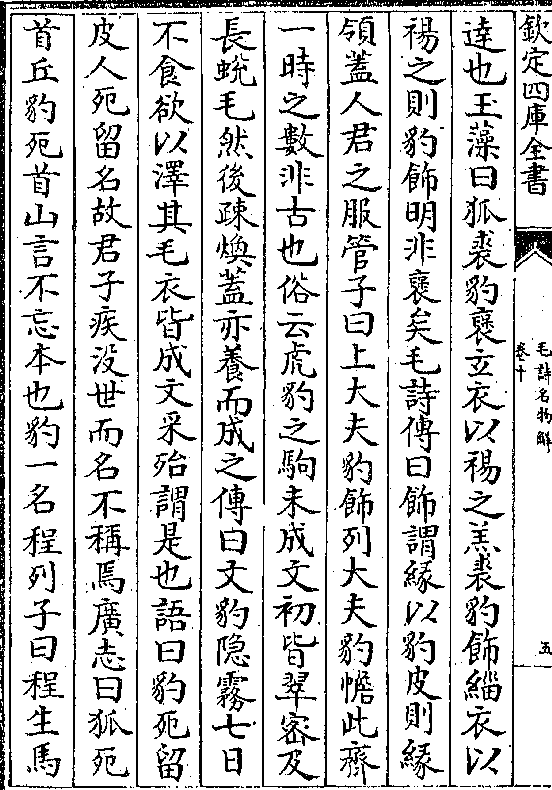 欽定四庫全書
毛詩名物解
卷十
五
達也玉藻曰狐裘豹褎玄衣以裼之羔裘豹飾緇衣以
裼之則豹飾明非褎矣毛詩傳曰飾謂緣以豹皮則緣
領蓋人君之服管子曰上大夫豹飾列大夫豹幨此齊
一時之數非古也俗云虎豹之駒未成文初皆翠密及
長蛻毛然後疎煥蓋亦養而成之傳曰文豹隐霧七日
不食欲以澤其毛衣皆成文采殆謂是也語曰豹死留
皮人死留名故君子疾没世而名不稱焉廣志曰狐死
首丘豹死首山言不忘本也豹一名程列子曰程生馬